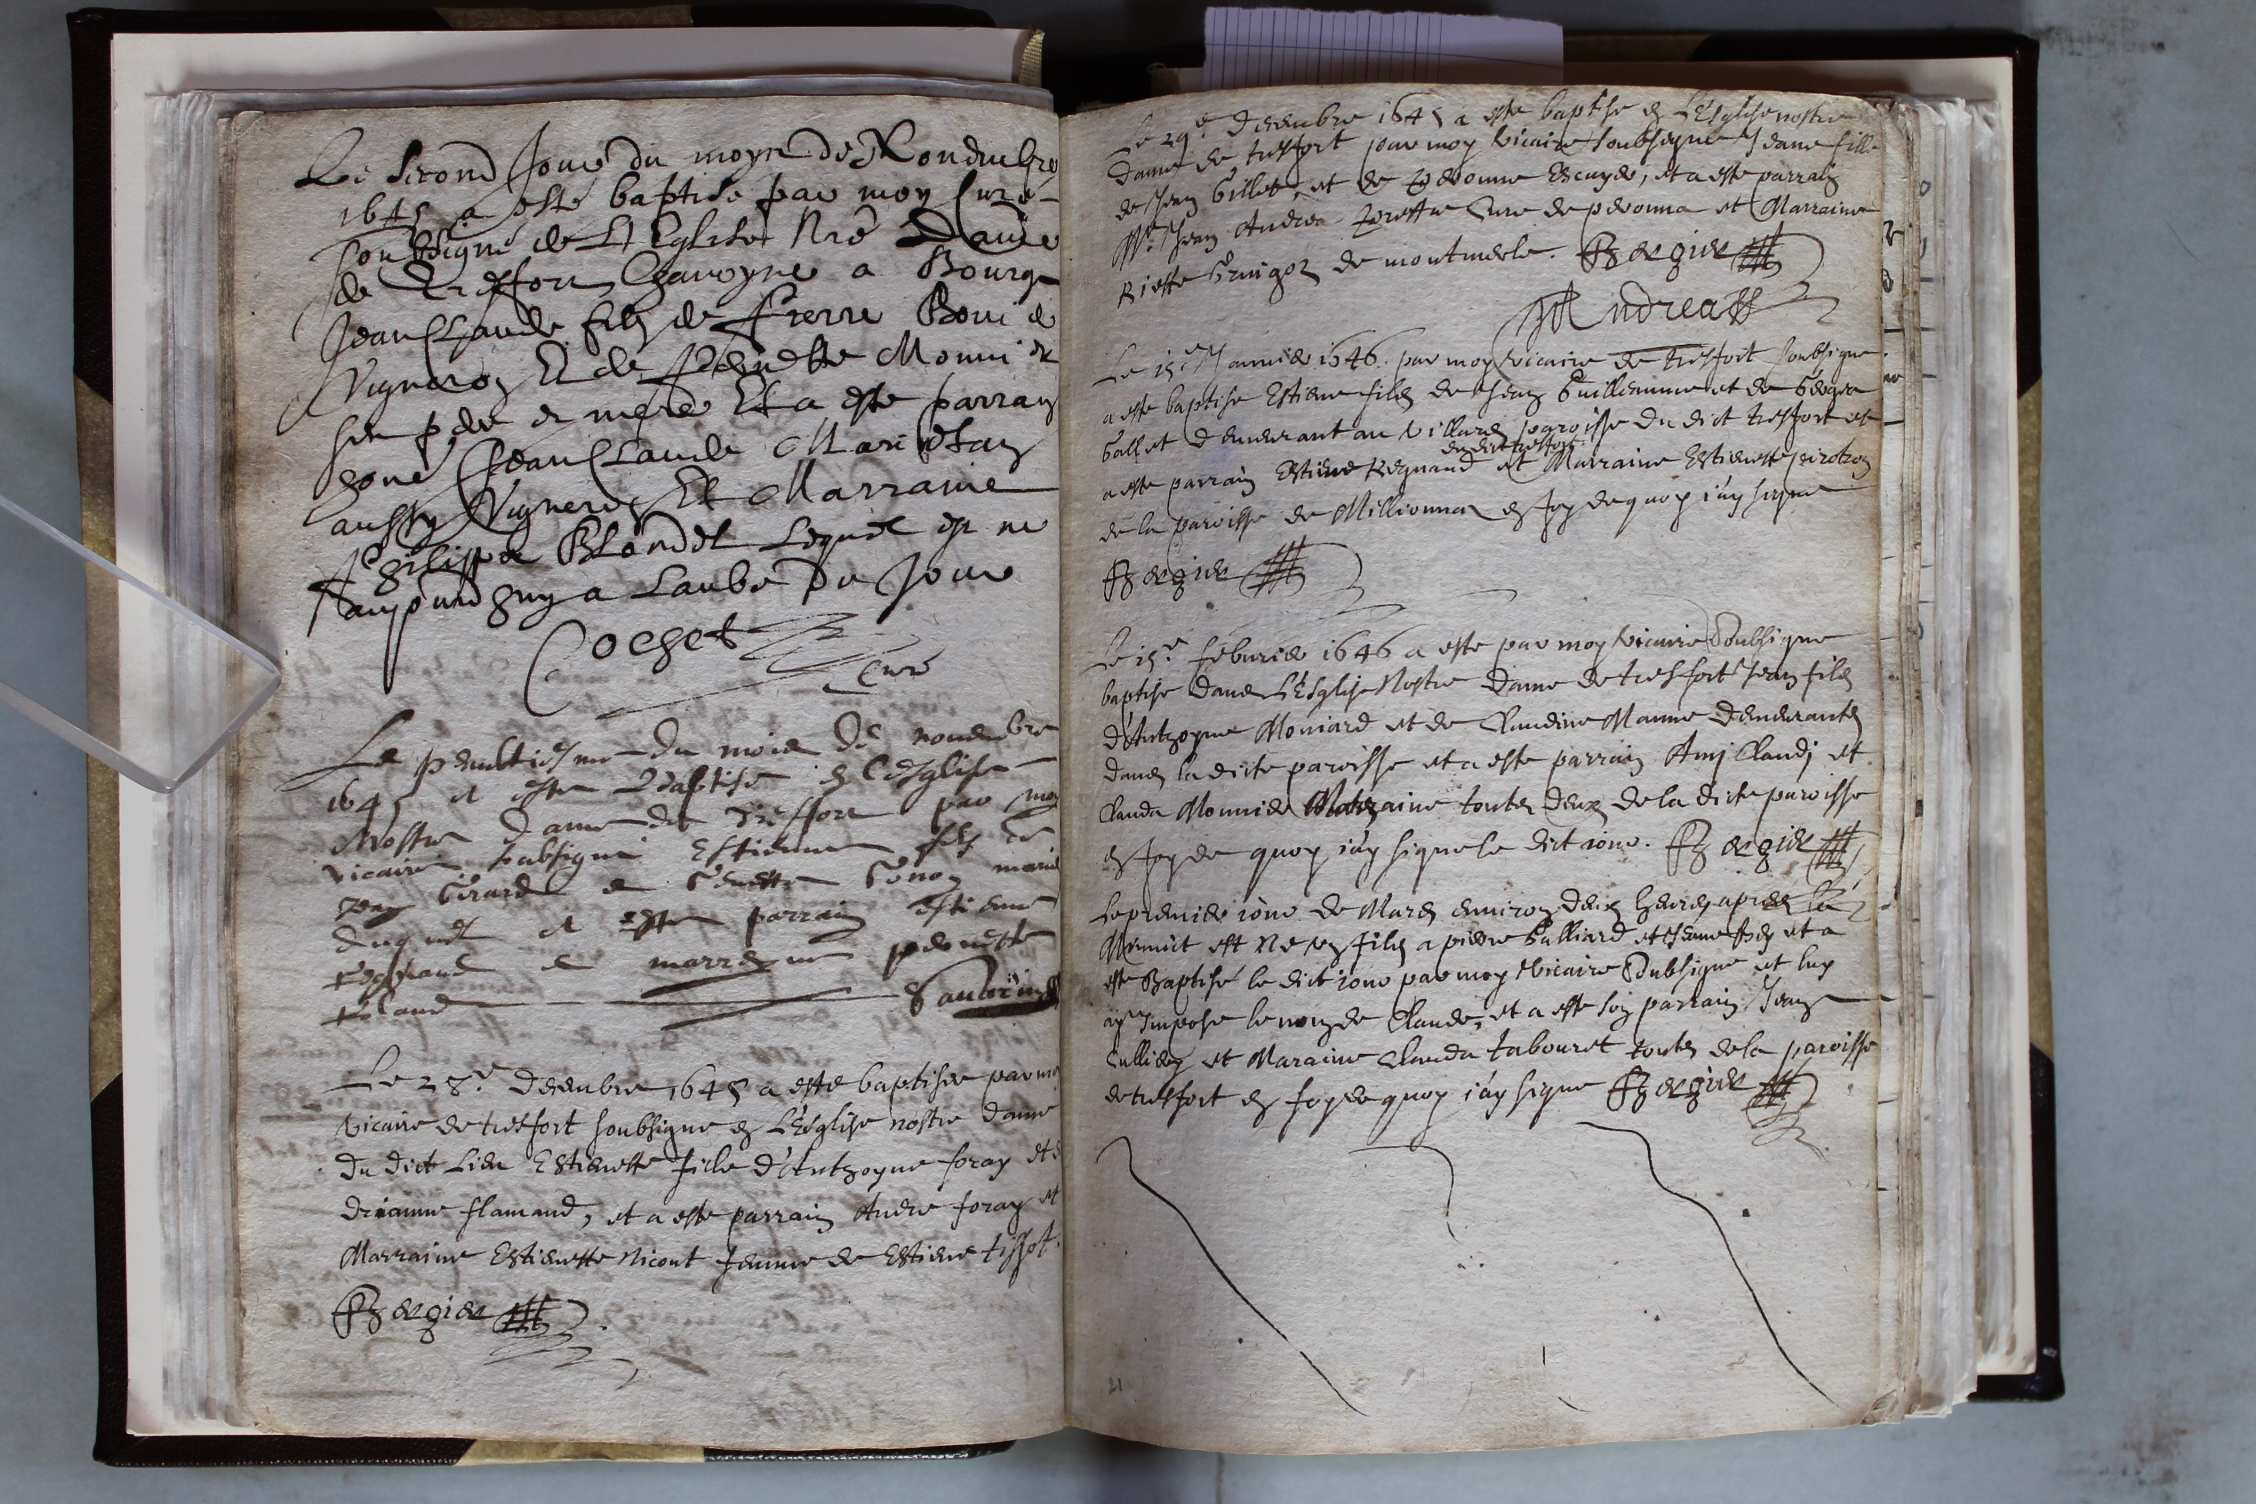 Le second Jour du moys de Novembre
1645 a esté baptisé par moy Curé
soubsigné de L'Eglise Nre Dame
de Treffort Chanoyne a Bourg
Jean Claude filz de Pierre Boui
Vigneron Et de Monnier
ses pere et mere Et a este parrain
honé Jean Claude
aussy Vigneron Et Marraine
Philippe Blondel Lequel est né
aujourdhuy a Laube Du Jour
Cochet
Curé
Le penultiesme du mois de novembre
1645 a este Baptisé en l'esglise
Nostre Dame de Treffort par moy
vicaire soubsigné Estienne filz de
Jean Girard et
a este parrain estienne
Regnaud et marreyne pernette
Roland
Le 28.e Decembre 1645 a esté baptisée par moy
vicaire de tresfort soubsigne en L'Esglise nostre dame
du dict Lieu Estienette fille d'Anthoyne foray et
flamand, et a este parrain André foray et
Marraine Estienette Nicout femme de Estiene tissot.
Bergier
Le 29.e Decembre 1645 a este baptise en L'Esglise nostre
dame de tresfort par moy vicaire soubsigne Jeane fille
de Jean Gillet, et de Pernonne Escuyer, et a este parrain
Mre Jean Andrea Curé de peronna et Marraine
de montmerle. Bergier
Andrea
Le 15.e Janvier 1646. par moy vicaire de tresfort soubsigne
a este baptise Estiene filz de Jean Guillaume et de
Gallet demeurant au villard paroisse du dict tresfort et
du dict tresfort
a este parrain Estiene Regnaud et Marraine Estienette
de la paroisse de Millionna en foy de quoy j'ay signe
Bergier
Le 15.e febvrier 1646 a este par moy vicaire soubsigne
baptise dans L'Esglise Nostre Dame de tresfort Jean filz
d'Anthoyne Moniard et de Claudine Manne demeurantz
dans la dicte paroisse et a este parrain Amj Claudj et
Clauda Monnier Marraine toutz deux de la dicte paroisse
en foy de quoy j'ay signe le dict jour. Bergier
Le premier jour de Mars environ deux heures apres la
Minuict est Ne un filz a piere Galliard et Jeane et a
este Baptisé le dict jour par moy vicaire soubsigne et luy
ay Impose le nom de Claude, et a este son parrain Jean
et Maraine Clauda tabouret toutz de la paroisse
de tresfort en foy de quoy j'ay signe Bergier
21